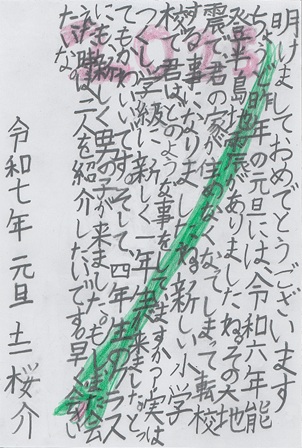 明けましておめでとうございます
ちょうど昨年の元旦には、令和六年能
登半島地震がありましたね。その大地
震で君の家が住めなくなってしまって転校
する事になりましたね。新しい小学
校で君はどのような事をしてますか？実は
つくし学級に新しく一年生が来ました。とっ
てもかわいいです。そして四年生のクラス
にも新しく男の子が来ました。もし会
えた時は二人を紹介したいです。早く会い
たいな。
令和七年 元旦 桜介